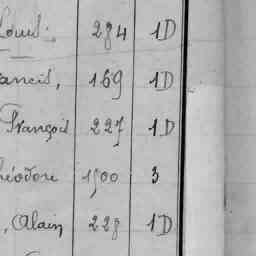 Louis. 284 1D
ancis, 169 1D
François 227 1D
héodore 1500 3
, Alain 228 1D